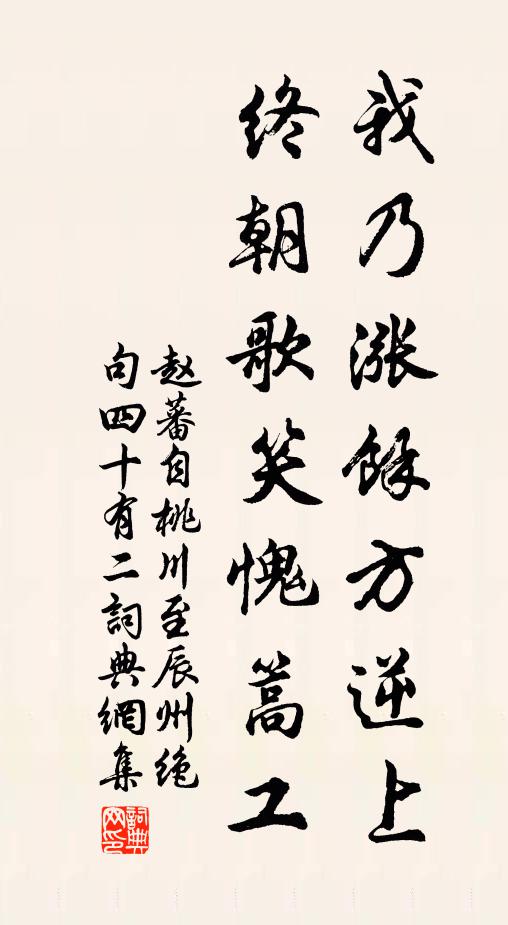 我乃漲餘方逆上
終朝歌笑愧篙工
赵蕃自桃川至辰州绝
句四十有二詞典網集
詞典網印